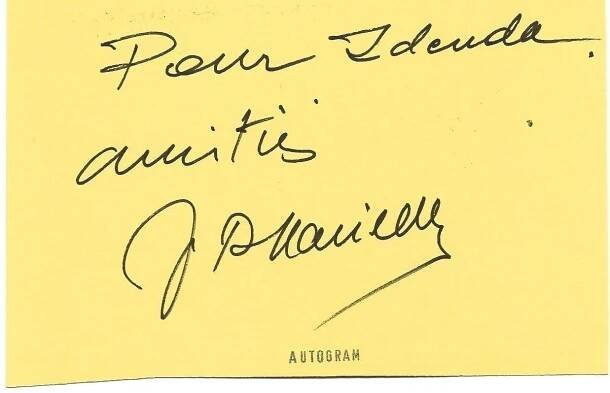 Pour Zdenda.
amitiés
J P Marielle
AUTOGRAM